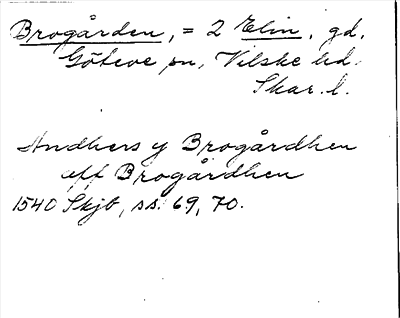 Brogården, = 2 Elin, gd,
Göteve sn, Vilske hd.
Skar. l.
Andhers y Brogårdhen
aff Brogårdhen
1540 Skjb, ss. 69, 70.